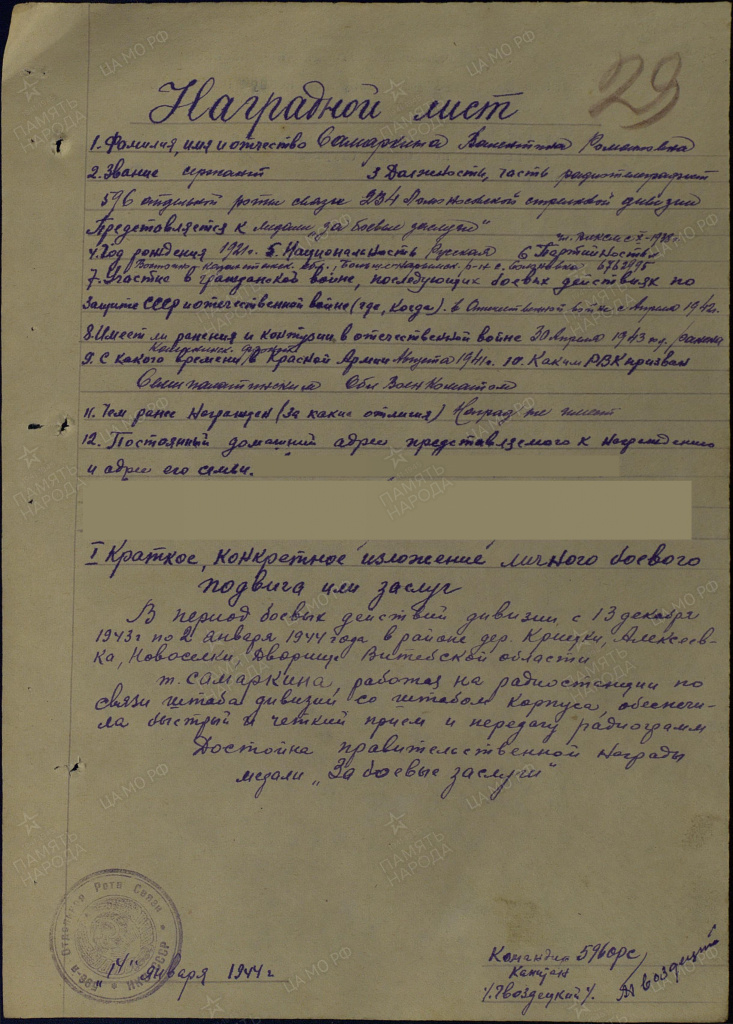 29
Наградной лист
1. Фамилия, имя и отчество Самаркина Валентина Романовна
2. Звание сержант 3 Должность, часть радиотелеграфист
596 отдельной роты связи 234 Ломоносовской стрелковой дивизии
Представляется к медали „за боевые заслуги"
чл. ВЛКСМ с 1938
4. Год рождения 1921г. 5. Национальность Русская 6 Партийность
обл., р-н с.
7. Участие в гражданской войне, последующих боевых действиях по
защите СССР и отечественной войне (где, когда). в Отечественной войне с Апреля 1942г.
8. Имеет ли ранения и контузии в отечественной войне 30 Апреля 1943 г. ранена
9. С какого времени в Красной Армии Августа 1941г. 10. Каким РВК призван
Семипалатинским Обл Воен Коматом
11. Чем ранее награжден (за какие отличия) Наград не имеет
12. Постоянный домашний адрес представляемого к награждению
и адрес его семьи.
I Краткое, конкретное изложение личного боевого
подвига или заслуг
В период боевых действий дивизии с 13 декабря
1943г по 2 января 1944 года в районе дер. Крицки, Алексеев-
ка, Новоселки, Дворище Витебской области
т. Самаркина, работая на радиостанции по
связи штаба дивизии со штабом Корпуса, обеспечи-
ла быстрый и четкий прием и передачу радиограмм
Достойна правительственной награды
медали „За боевые заслуги"
Отдельная Рота Связи НКО СССР
„14" января 1944 г
Командир 596 орс
Капитан
/.Гвоздецкий/. Гвоздецкий
ПАМЯТЬ НАРОДА
ЦАМО.РФ